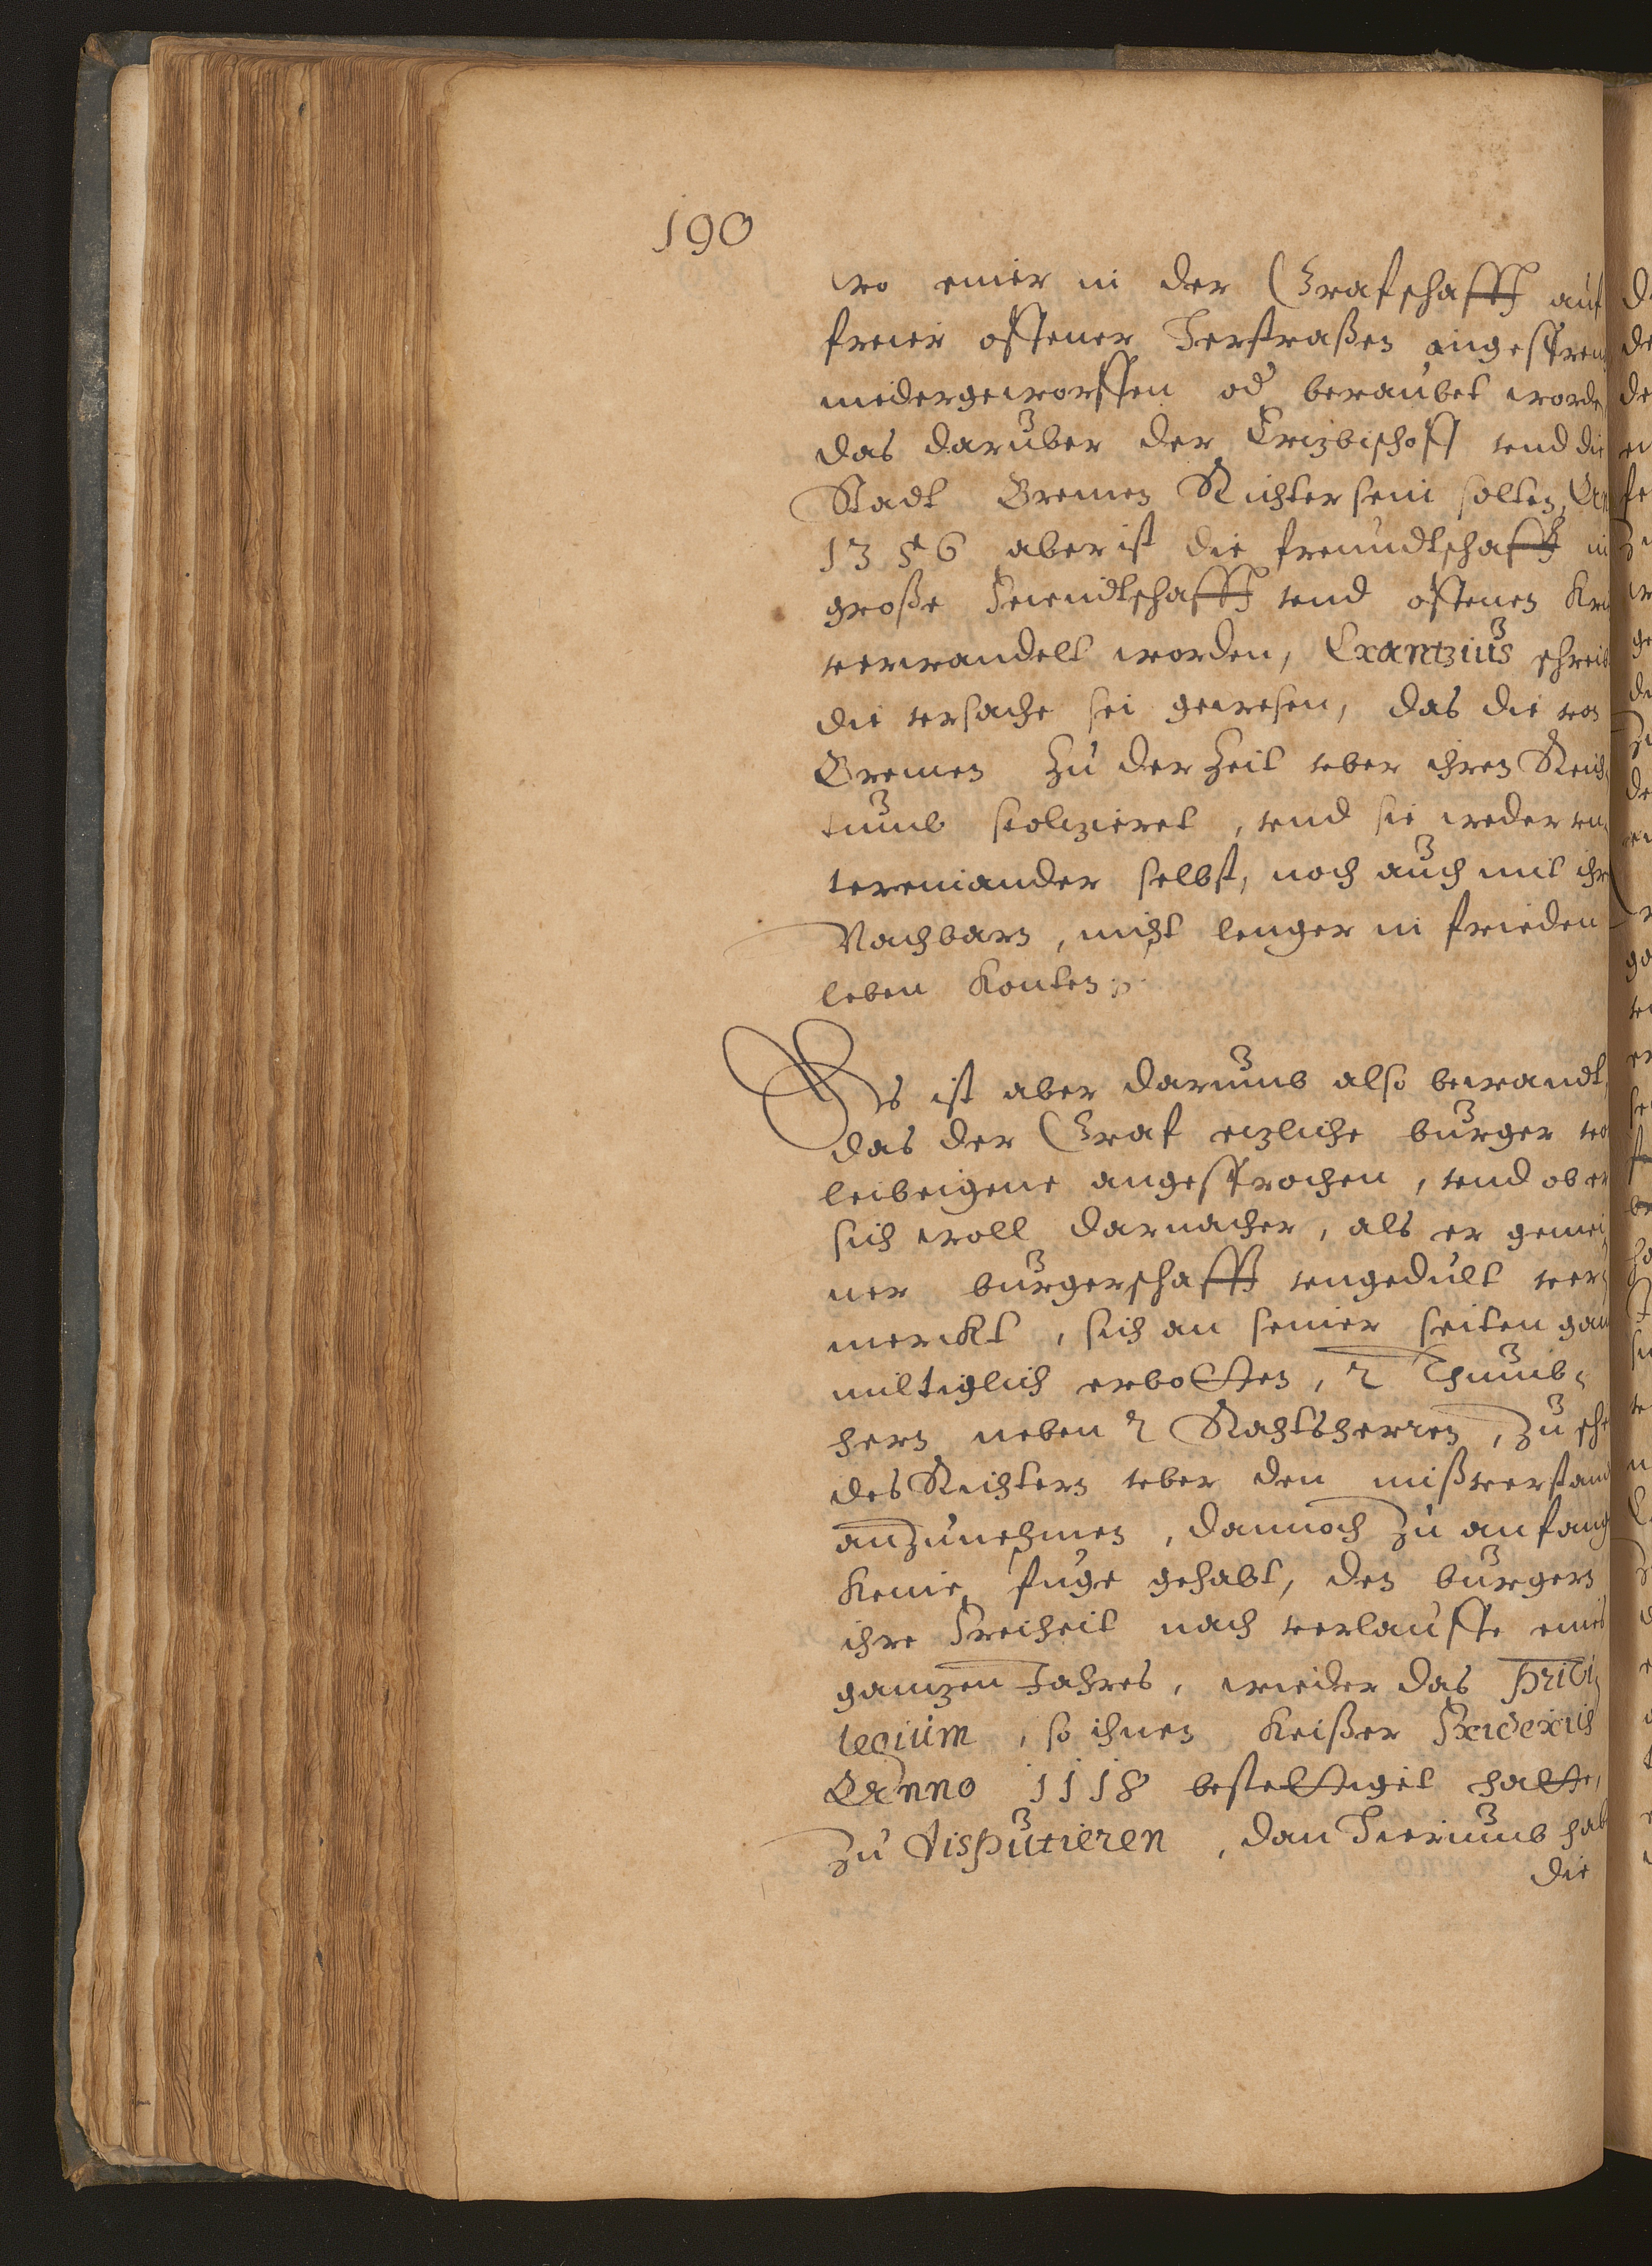 190
wo einer in der Grafschafft auf
freier offener Herstraßen angespren
nidergeworffen od beraubet worde
das daruber der Ertzbischoff vnd die
Stadt Bremen Richter sein solten, An
1356 aber ist die freundtschafft in
große Feiendtschafft vnd offenen Kri
verwandelt worden, Crantzius schreib
die vrsache sei gewesen, das die von
Bremen zu der Zeit vber ihren Reich
tumb stoltzieret, vnd sie weder vn
tereinander selbst, noch auch mit ihr
Nachbarn, nicht lenger in frieden
leben konten
Es ist aber darumb also bewandt,
das der Graf etzliche burger vo
leibeigene angesprochen, vnd ob er
sich woll darnacher, als er gemei
ner burgerschafft vngedult ver
merckt, sich an seiner seiten gan
miltiglich erbotten, 2 Thumb
hern neben 2 Rahtsherren, zu sche
des Richtern vber den mißverstand
anzunehmen, dannoch zu anfang
keine fuge gehabt, den burgern
ihre Freiheit nach verlauffe eines
gantzen Jahres, wieder das Privi
legium, so ihnen Keißer Friderich
Anno 1118 bestettiget hatte,
zu disputieren, dan Hierumb hab
die